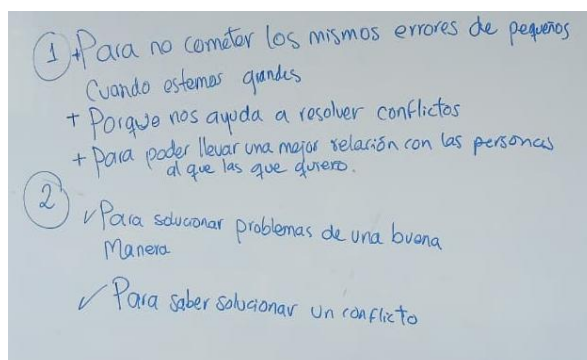 1 + Para no cometer los mismos errores de pequeños
Cuando estemos grandes
+ Porque nos ayuda a resolver conflictos
+ Para poder llevar una mejor relación con las personas
al que las que quiero.
2
✓ Para solucionar problemas de una buena
Manera
✓ Para saber solucionar un conflicto